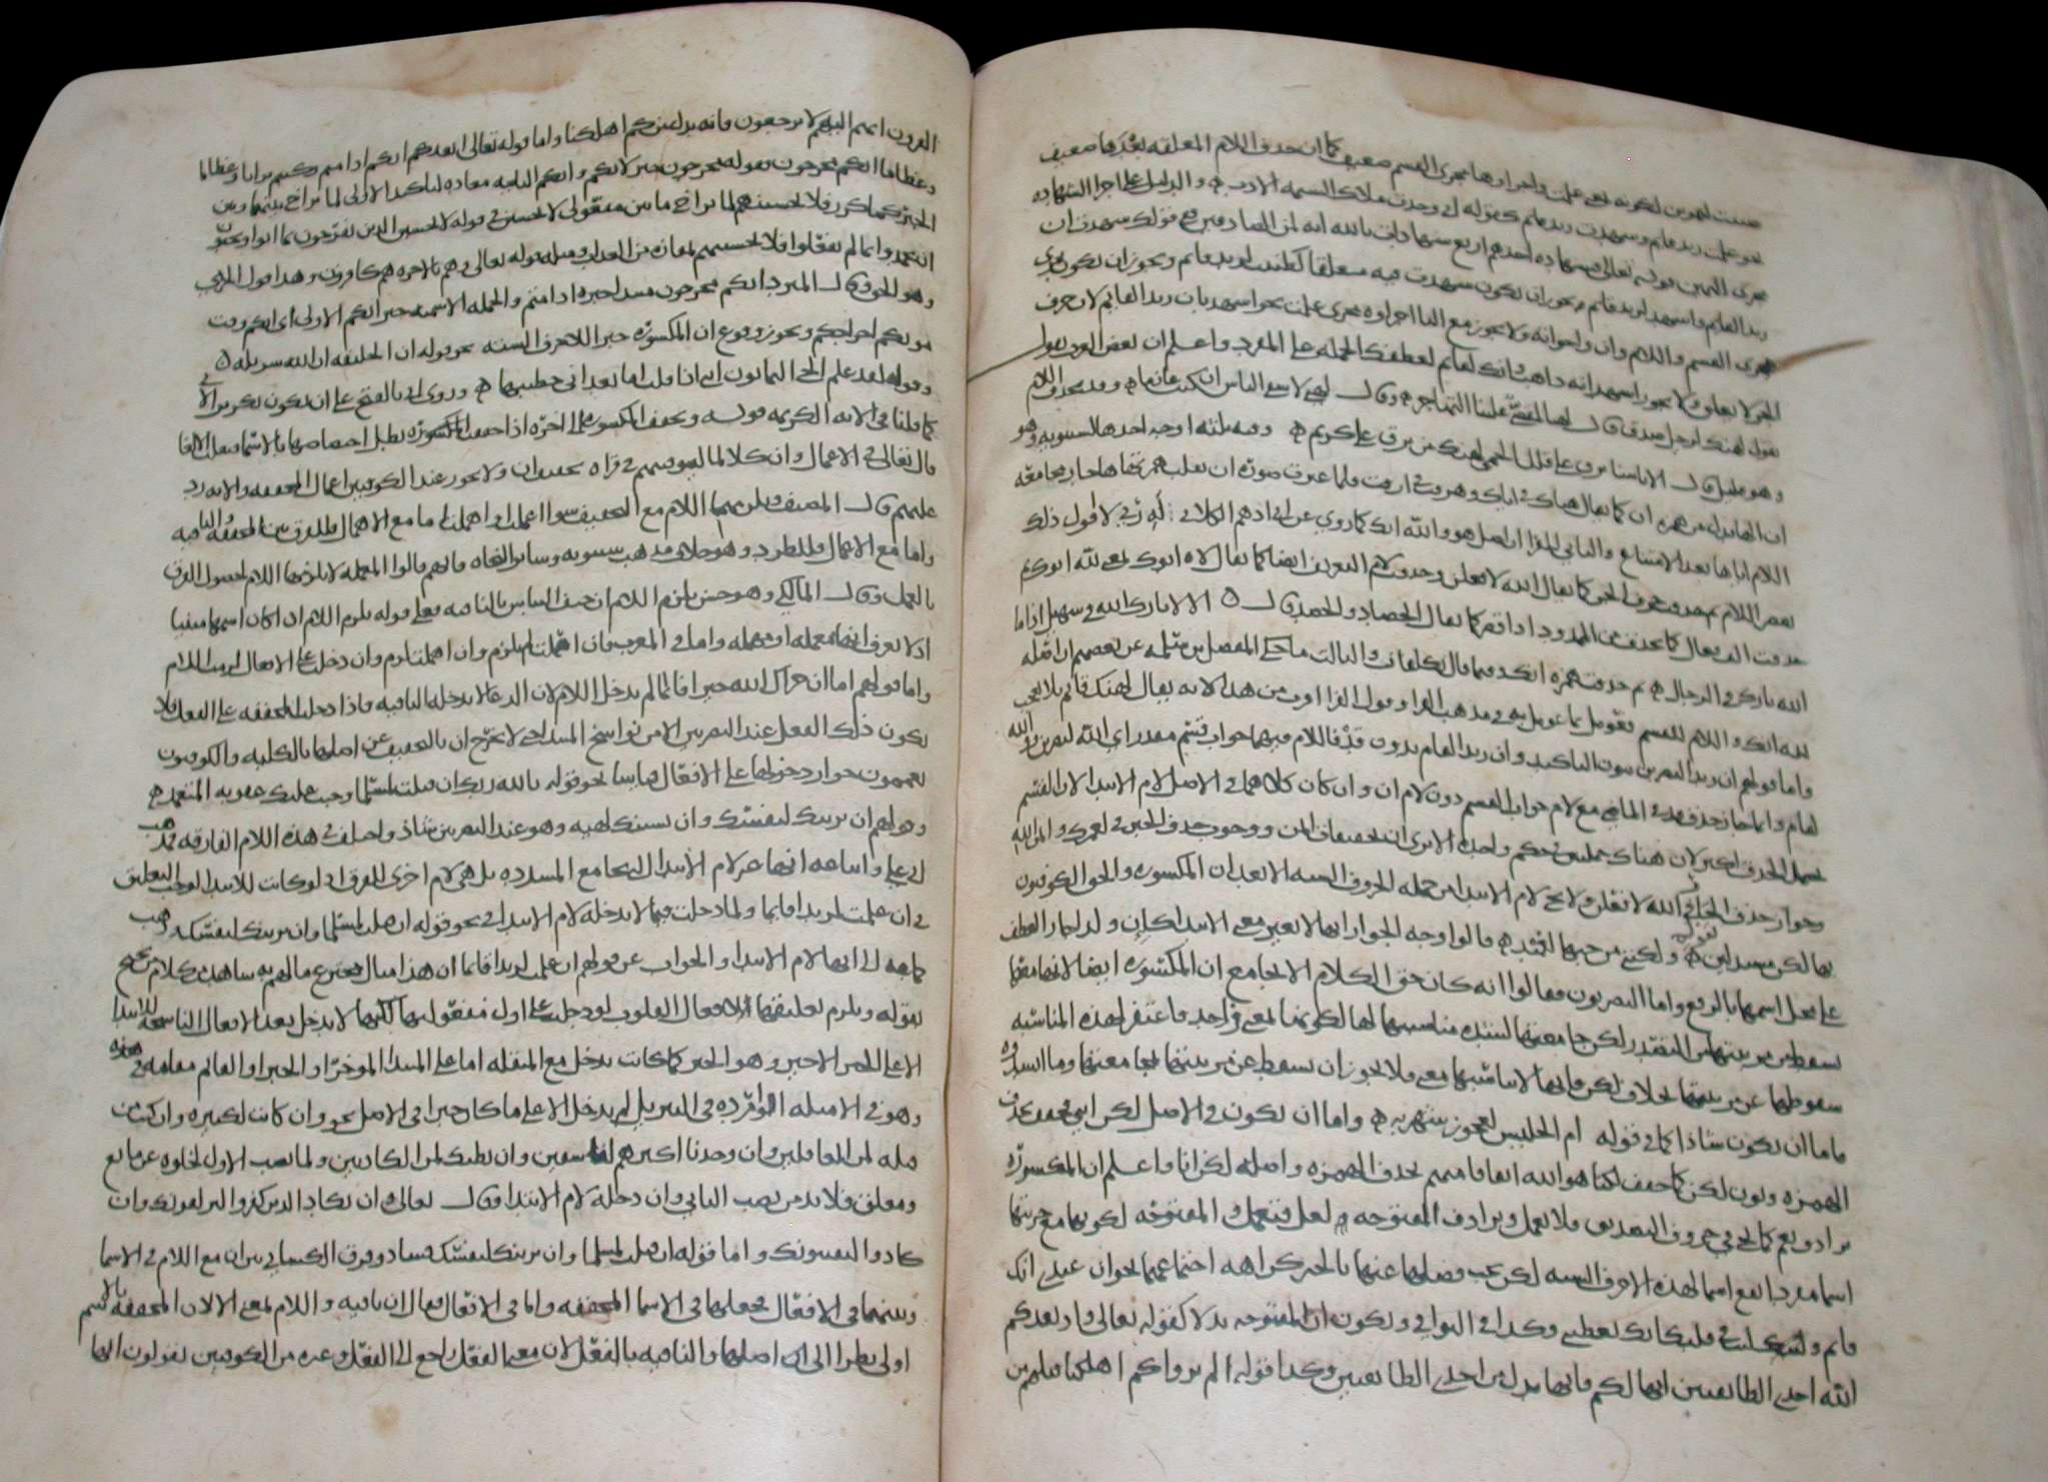 صبت لهوين لكونه بمعنى علمت واجراوها مجرى القسم ضعيف كما ان حذف اللام المعلقه بعدها ضعيف
نحو علمت زيد قايم وشهدت زيد قايم كقوله اني وجدت ملاك الشيمه الادب والدليل على اجرا الشهاده
مجرى اليمين قوله تعالى فشهاده احدهم اربع شهادات بالله انه لمن الصادقين فقولك شهدت ان
زيدا لقايم واشهد لزيد قايم يجوز ان يكون شهدت فيه معلقا كظننت لزيد قايم ويجوز ان يكون اجري
مجرى القسم واللام وان واجوابه ولا يجوز مع البا اجراوه مجرى علمت نحو اشهد بان زيدا لقايم لان حرف
الجر لا يعلق ولا يجوز اشهد انه ذاهب وانك لقايم لعطفك الجمله على المفرد واعلم ان بعض العرب يقول
يقول لهنك لرجل صدق قال لهنا لمقضي علينا التهاجر وقال لهني لاشقى الناس ان كنت غارما وقد يحذف اللام
وهو قليل قال الا يا سنا برق على قلل الحمى لهنك من برق علي كريم وفيه ثلثه اوجه احدها لسيبويه وهو
ان الها بدل من همزه ان كما يقال هياك في اياك وهرقت في ارقت فلما غيرت صوره ان بقلب همزتها ها جاز مجامعه
اللام اياها بعد الامتناع والثاني للفرا ان اصل هو والله انك كما روي عن ابي ادهم الكلابي له ربي لا اقول ذلك
بقصر اللام ثم حذف حرف الجر كما يقال الله لافعلن وحذفت لام التعريف ايضا كما يقال لاه ابوك بمعنى لله ابوك ثم
حذفت الف فعال كما يحذف من الممدود اذا قصر كما يقال الحصاد والحصد قال الا لا بارك الله في سهيل اذا ما
الله بارك في الرجال ثم حذفت همزه انك وفيما قال تكلفات والثالث ما حكى المفضل بن سلمه عن بعضهم ان اصله
لله انك واللام للقسم فعومل بما عومل به في مذهب الفرا وقول الفرا اقرب من هذا لانه يقال لهنك قايم بلا تعجب
واما قولهم ان زيدا ليضربن بنون التاكيد وان زيدا لقام بدون قد فاللام فيهما جواب قسم مقدر اي والله ليضربن ووالله
لقام وانما جاز حذف قد في الماضي مع لام جواب القسم دون لام ان وان كان كلاهما في الاصل لام الابتدا لان القسم
يحتمل الحذف اكثر لان هناك جملتين في حكم واحده الا ترى ان تخفيفاتهم ووجوب حذف الخبر في لعمرك وايمن الله
وجواز حذف الجار في الله لافعلن ولا يجي لام الابتدا من جمله الحروف السته الا بعد ان المكسوره والحق الكوفيون
بها لكن مستدلين بقوله ولكنني من حبها لعميد قالوا وجه الجواز انها لا تغير معنى الابتدا كان ولذا جاز العطف
على محل اسمهما بالرفع واما البصريون فقالوا انه كان حق الكلام الا يجامع ان المكسوره ايضا لانهما معها
تسقط عن مرتبتها من التصدر لكن جامعتها لشده مناسبتها لها لكونهما بمعنى واحد فاغتفر لهذه المناسبه
سقوطها عن مرتبتها بخلاف لكن فانها لا تناسبها معنى فلا يجوز ان تسقط عن مرتبتها بمجامعتها وما انشدوه
فاما ان يكون شاذا كما في قوله ام الحليس لعجوز شهربه واما ان يكون في الاصل لكن انني فخفف بحذف
الهمزه ونون لكن كما خفف لكنا هو الله اتفاقا منهم بحذف الهمزه واصله لكن انا واعلم ان المكسوره
ترادف نعم كما يجي في حروف التصديق فلا تعمل وترادف المفتوحه لعل فتعمل والمفتوحه لكونها مع جزئيها
اسما مفردا تقع اسما لهذه الاحرف السته لكن يجب فصلها عنها بالخبر كراهه اجتماعهما نحو ان عندي انك
قايم وليت في قلبك انك تعطيني وكذا في البواقي وتكون ان المفتوحه بدلا كقوله تعالى واذ يعدكم
الله احدى الطائفتين انها لكم فانها بدل من احدى الطائفتين وكذا قوله الم يروا كم اهلكنا قبلهم من
القرون انهم اليهم لا يرجعون فانه بدل من كم اهلكنا واما قوله تعالى ايعدكم انكم اذا متم وكنتم ترابا وعظاما
وعظاما انكم مخرجون فقوله مخرجون خبر لانكم وانكم الثانيه معاده لتاكيد الاولى لما تراخى بينها وبين
الخبر كما كرر فلا تحسبنهم لما تراخى ما بين مفعولي لا تحسبن في قوله لا تحسبن الذين يفرحون بما اتوا ويحبون
ان يحمدوا بما لم يفعلوا فلا تحسبنهم بمفازه من العذاب ومثله قوله تعالى وهم بالاخره هم كافرون وهذا قول الجرمي
وهو الحق وقال المبرد انكم مخرجون مبتدا خبره اذا متم والجمله الاسميه خبر انكم الاولى اي انكم وقت
موتكم اخراجكم ويجوز وقوع ان المكسوره خبرا للاحرف السته نحو قوله ان الخليفه ان الله سربله
وقوله لقد علم الحي اليمانون انني اذا قلت اما بعد اني خطيبها وروي اني بالفتح على ان يكون تكريرا لاني
كما قلنا في الايه الكريمه قوله وتخفف المكسوره الى اخره اذا خففت المكسوره بطل اختصاصها بالاسما فيغلب الالغا
قال تعالى في الاعمال وان كلا لما ليوفينهم في قراه تخفيف ان ولا يجوز عند الكوفيين اعمال المخففه والايه رد
عليهم قال المصنف ويلزمها اللام مع التخفيف سوا اعملت او اهملت اما مع الاهمال فللفرق بين المخففه والنافيه
واما مع الاعمال فللطرد وهو خلاف مذهب سيبويه وساير النحاه فانهم قالوا المعمله لا يلزمها اللام لحصول الفرق
بالعمل وقال المالكي وهو حسن يلزم اللام ان خيف التباس بالنافيه فعلى قوله يلزم اللام ان كان اسمها مبنيا
اذ لا يعرف انها معمله او مهمله واما في المعرب فان اعملت لم يلزم وان اهملت لزم وان دخلت على الافعال لزمت اللام
واما قولهم اما ان جزاك الله خيرا فانما لم يدخل اللام لان الدعا لا يدخله النافيه فاذا دخلت المخففه على الفعل فلا بد
يكون ذلك الفعل عند البصريين الا من نواسخ المبتدا حتى لا تخرج ان بالتخفيف عن اصلها بالكليه والكوفيون
يعممون جواز دخولها على الافعال قياسا نحو قوله بالله ربك ان قتلت لمسلما وجبت عليك عقوبه المتعمد
وقولهم ان تزينك لنفسك وان تشينك لهيه وهو عند البصريين شاذ واختلف في هذه اللام الفارقه فمذهب
ابي علي واتباعه انها غير لام الابتدا التي تجامع المشدده بل هي لام اخرى للفرق اذ لو كانت للابتدا لوجب التعليق
في ان علمت لزيدا قايما ولما دخلت فيما لا يدخله لام الابتدا في نحو قوله ان قتلت لمسلما وان تزينك لنفسك وذهب
جماعه الى انها لام الابتدا والجواب عن قولهم ان علمت لزيدا قايما ان هذا مثال مخترع ما لهم به شاهد من كلام فصيح
بقوله ويلزم تعليقها الافعال القلوب لو دخلت على اول مفعوليها لكنها لا تدخل بعد الافعال الناسخه للابتدا
الا على الجزء الاخير وهو الخبر كما كانت تدخل مع المثقله اما على المبتدا الموخر او الخبر او القايم مقامه وهذه
وهو في الامثله الوارده في التنزيل لم يدخل الا على ما كان خبرا في الاصل نحو وان كانت لكبيره وان كنت من
قبله لمن الغافلين وان وجدنا اكثرهم لفاسقين وان نظنك لمن الكاذبين ولما نصب الاول لخلوه عن مانع
ومعلق فلا بد من نصب الثاني وان دخله لام الابتدا وقال تعالى ان يكاد الذين كفروا ليزلقونك وان
كادوا ليفتنونك واما قوله ان قتلت لمسلما وان تزينك لنفسك فشاذ وفرق الكسائي بين ان مع اللام في الاسما
وبينها في الافعال فجعلها في الاسما المخففه واما في الافعال فقال ان نافيه واللام بمعنى الا لان المخففه بالاسم
اولى نظرا الى اصلها والنافيه بالفعل لان معنى النفي راجع الى الفعل وغيره من الكوفيين يقولون انها